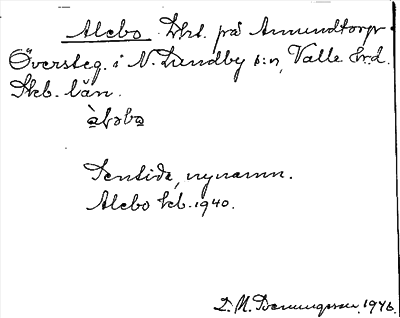 Alebo Lht. på Amundtorp
Översteg. i N. Lundby s:n, Valle hrd.
Skb. län.
àlebo
Sentida, nynamn.
Alebo kb. 1940.
D. M. 1946.